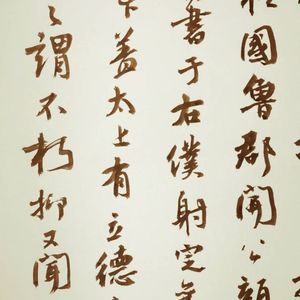 國魯郡開公顏
書于右僕射定
下盖太上有立德
之謂不朽抑又聞